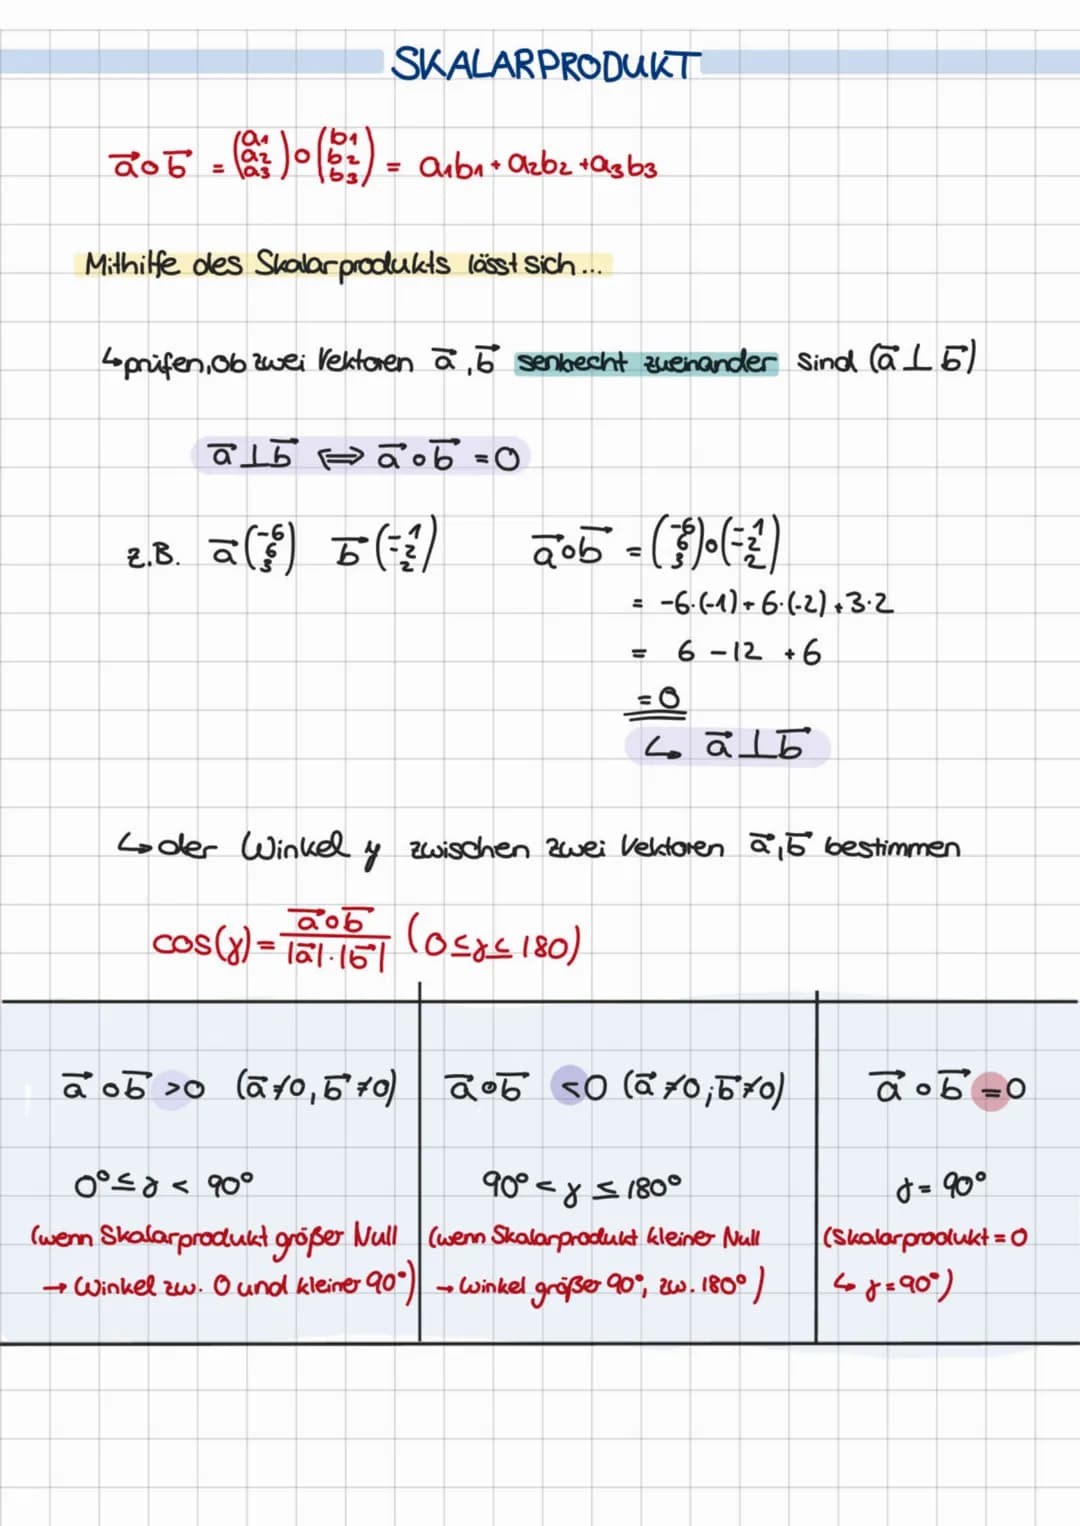 SKALARPRODUKT
a⃗∘b⃗ = (a1 a2 a3)∘(b1 b2 b3) = a1b1 + a2b2 + a3b3
Mithilfe des Skalarprodukts lässt sich...
↳ prüfen, ob zwei Vektoren a⃗, b⃗ senkrecht zueinander sind (a⃗ ⊥ b⃗)
a⃗ ⊥ b⃗ ⟺ a⃗ ∘ b⃗ = 0
z.B. a⃗ (-6 6 3) b⃗ (-1 -2 2) a⃗∘b⃗ = (-6 6 3)∘(-1 -2 2)
= -6·(-1) + 6·(-2) + 3·2
= 6 - 12 + 6
= 0
↳ a⃗ ⊥ b⃗
↳ der Winkel γ zwischen zwei Vektoren a⃗, b⃗ bestimmen
cos(γ) = a⃗∘b⃗ / |a⃗|·|b⃗| (0 ≤ γ ≤ 180)
a⃗ ∘ b⃗ > 0 (a⃗ ≠ 0, b⃗ ≠ 0)
0° ≤ γ < 90°
(wenn Skalarprodukt größer Null
→ Winkel zw. 0 und kleiner 90°)
a⃗∘b⃗ < 0 (a⃗ ≠ 0; b⃗ ≠ 0)
90° < γ ≤ 180°
(wenn Skalarprodukt kleiner Null
→ Winkel größer 90°, zw. 180°)
a⃗ ∘ b⃗ = 0
γ = 90°
(Skalarprodukt = 0
↳ γ = 90°)